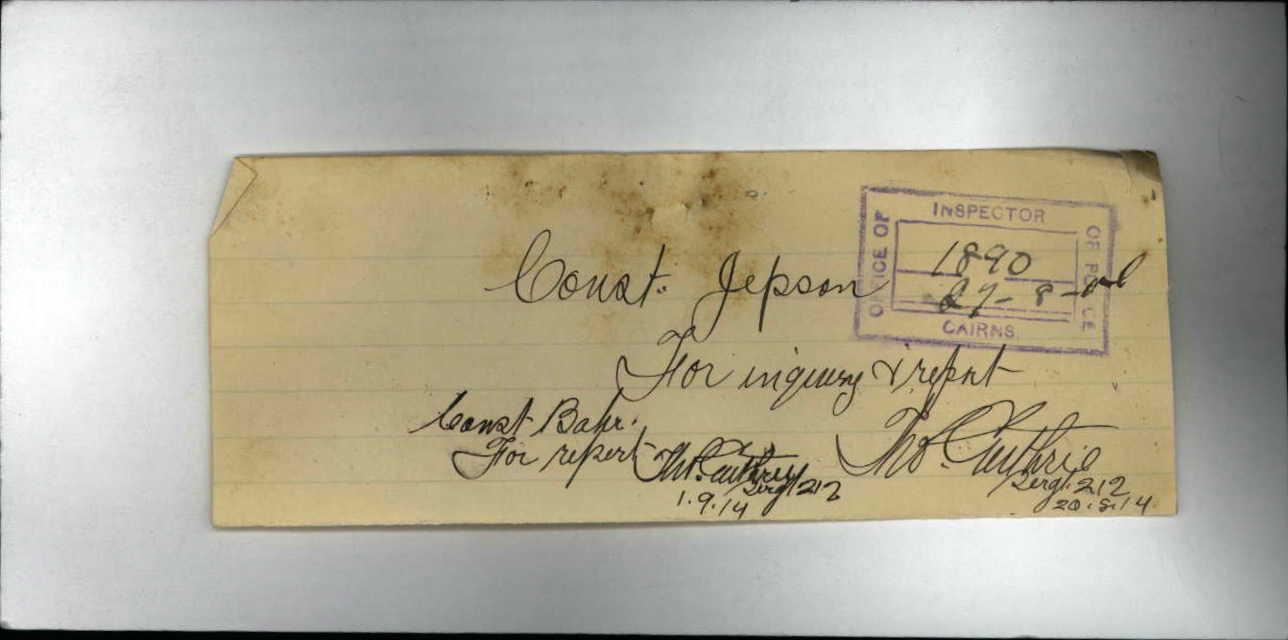 INSPECTOR
OFFICE OF
OF POLICE
1890
27-8-
CAIRNS
Const. Jepson
For inquiry & report
Tho. Guthrie
Sergt 212
20.8.14
Const Bahr.
For report
Sergt 212
1.9.14